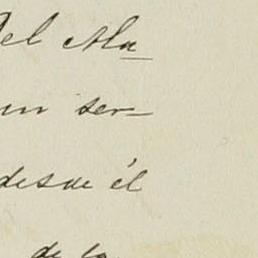 del Ala
un ser-
desde él
de la